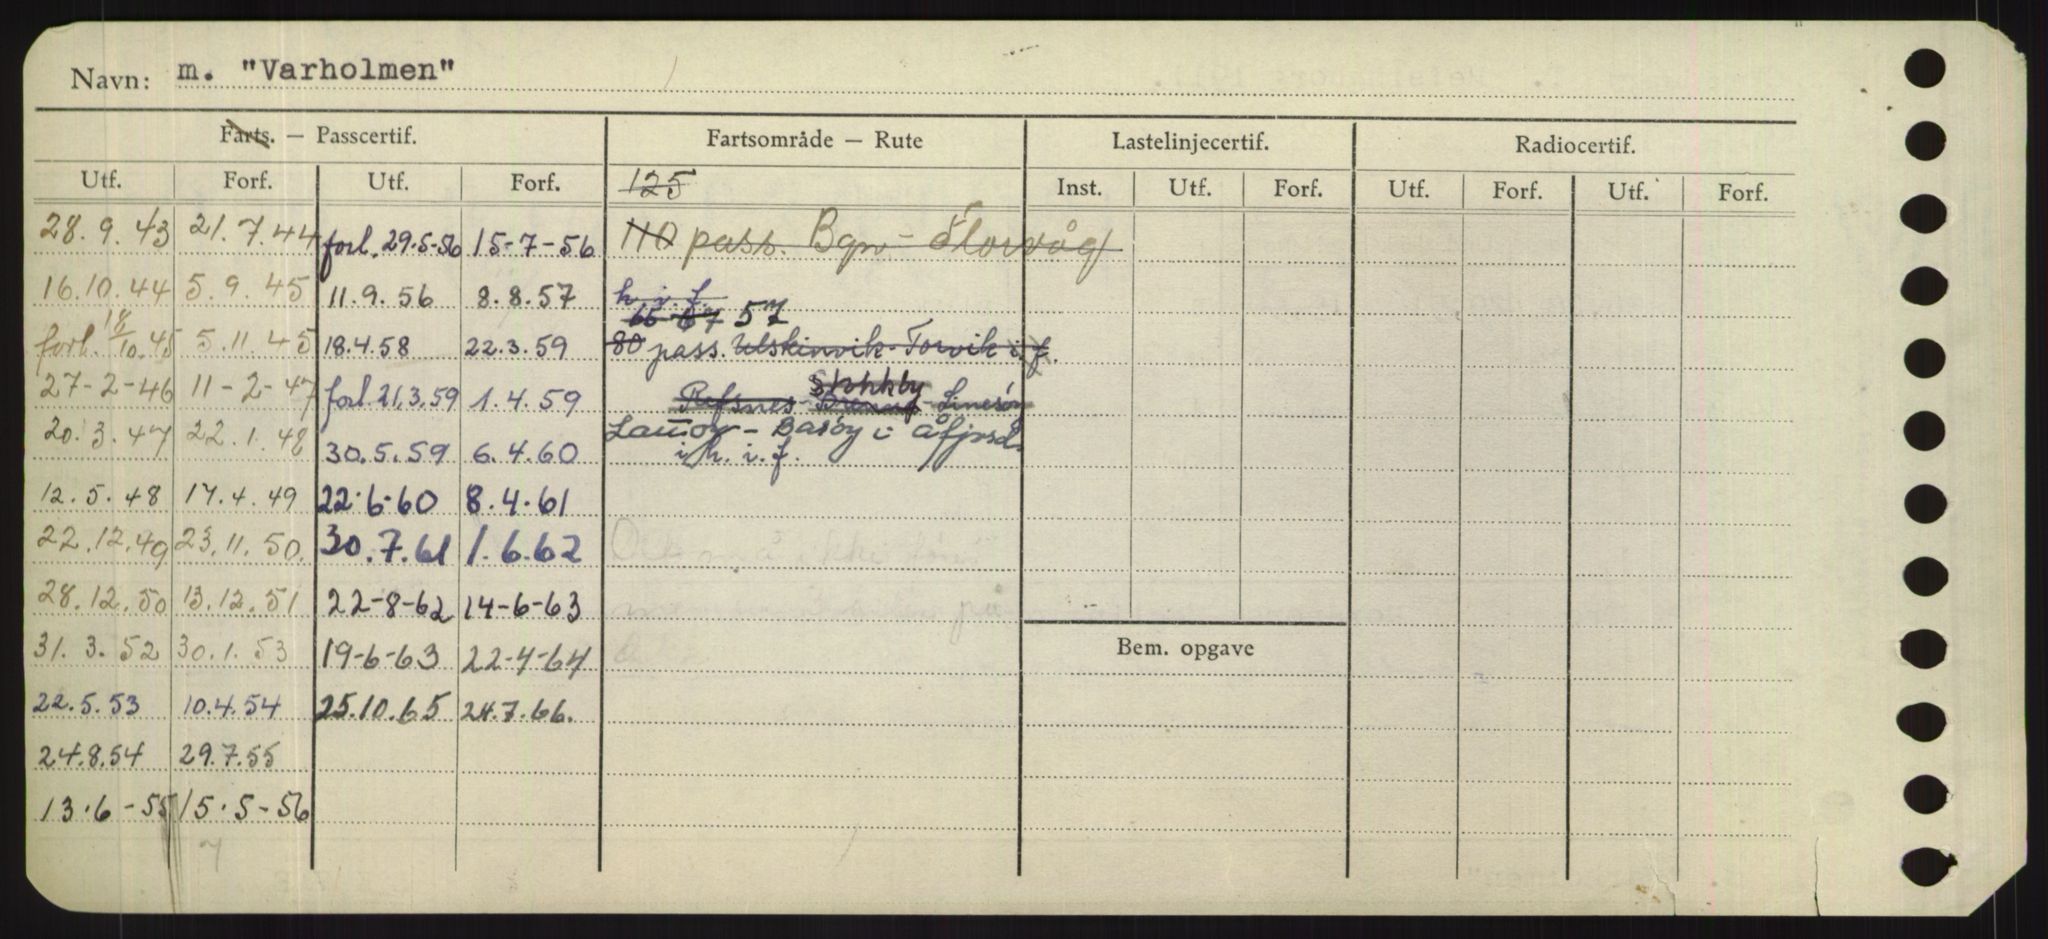 Navn: m. "Varholmen"
Farts. — Passcertif. Fartsområde — Rute Lastelinjecertif. Radiocertif.
Utf. Forf. Utf. Forf. 125 Inst. Utf. Forf. Utf. Forf. Utf. Forf.
28.9.43 21.7.44 forl. 29.5-56 15-7-56 110 pass. Bgn - Florvåg
16.10.44 5.9.45 11.9.56 8.8.57 h.i.f.
65 67 57
forl. 18/10.45 5.11.45 18.4.58 22.3.59 80 pass. Ulskinvik-Torvik i. f.
27-2-46 11-2-47 forl. 21.3.59 1.4.59 Refsnes - - Linesøy
20.3.47 22.1.48 30.5.59 6.4.60 - Basøy i Åfjord
i h.i.f.
12.5.48 17.4.49 22.6.60 8.4.61
22.12.49 23.11.50. 30.7.61 1.6.62
28.12.50 13.12.51 22-8-62 14-6-63
31.3.52 30.1.53 19-6-63 22-4-64
22.5.53 10.4.54 25.10.65 24.7.66.
24.8.54 29.7.55
13.6-55 15.5-56
7
Bem. opgave